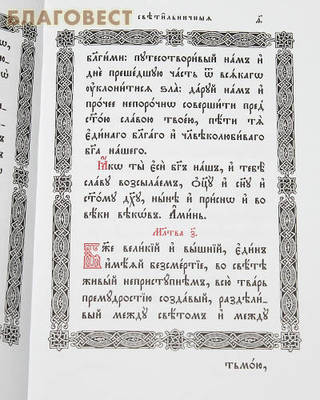 БЛАГОВЕСТ
свѣти́льничныѧ
бл҃ги́ми: путесотвори́вый на́мъ и҆
днѐ прешéдшую ча́сть ѿ всѧ́кагѡ
ᲂу҆клони́тисѧ ѕла̀: да́руй на́мъ и҆
про́чее непоро́чнѡ соверши́ти пред̾
ст҃о́ю сла́вою твоéю, пѣ́ти тѧ̀
є҆ди́наго бл҃га́го и҆ чл҃вѣколюби́ваго
бг҃а на́шего.
Ꙗ҆́кѡ ты̀ є҆сѝ бг҃ъ на́шъ, и҆ тебѣ̀
сла́ву возсыла́емъ, ѻ҆ц҃ꙋ̀ и҆ сн҃ꙋ и҆
ст҃о́мꙋ дх҃ꙋ, ны́нѣ и҆ при́снѡ и҆ во
вѣ́ки вѣкѡ́въ. А҆ми́нь.
Мл҃тва з҃.
Бж҃е вели́кїй и҆ вы́шнїй, є҆ди́нъ
и҆мѣ́ѧй безсмéртїе, во свѣ́тѣ
живы́й непристꙋ́пнѣмъ, всю̀ тва́рь
премꙋ́дростїю созда́вый, раздѣли́-
вый междꙋ̀ свѣ́томъ и҆ междꙋ̀
тьмо́ю,